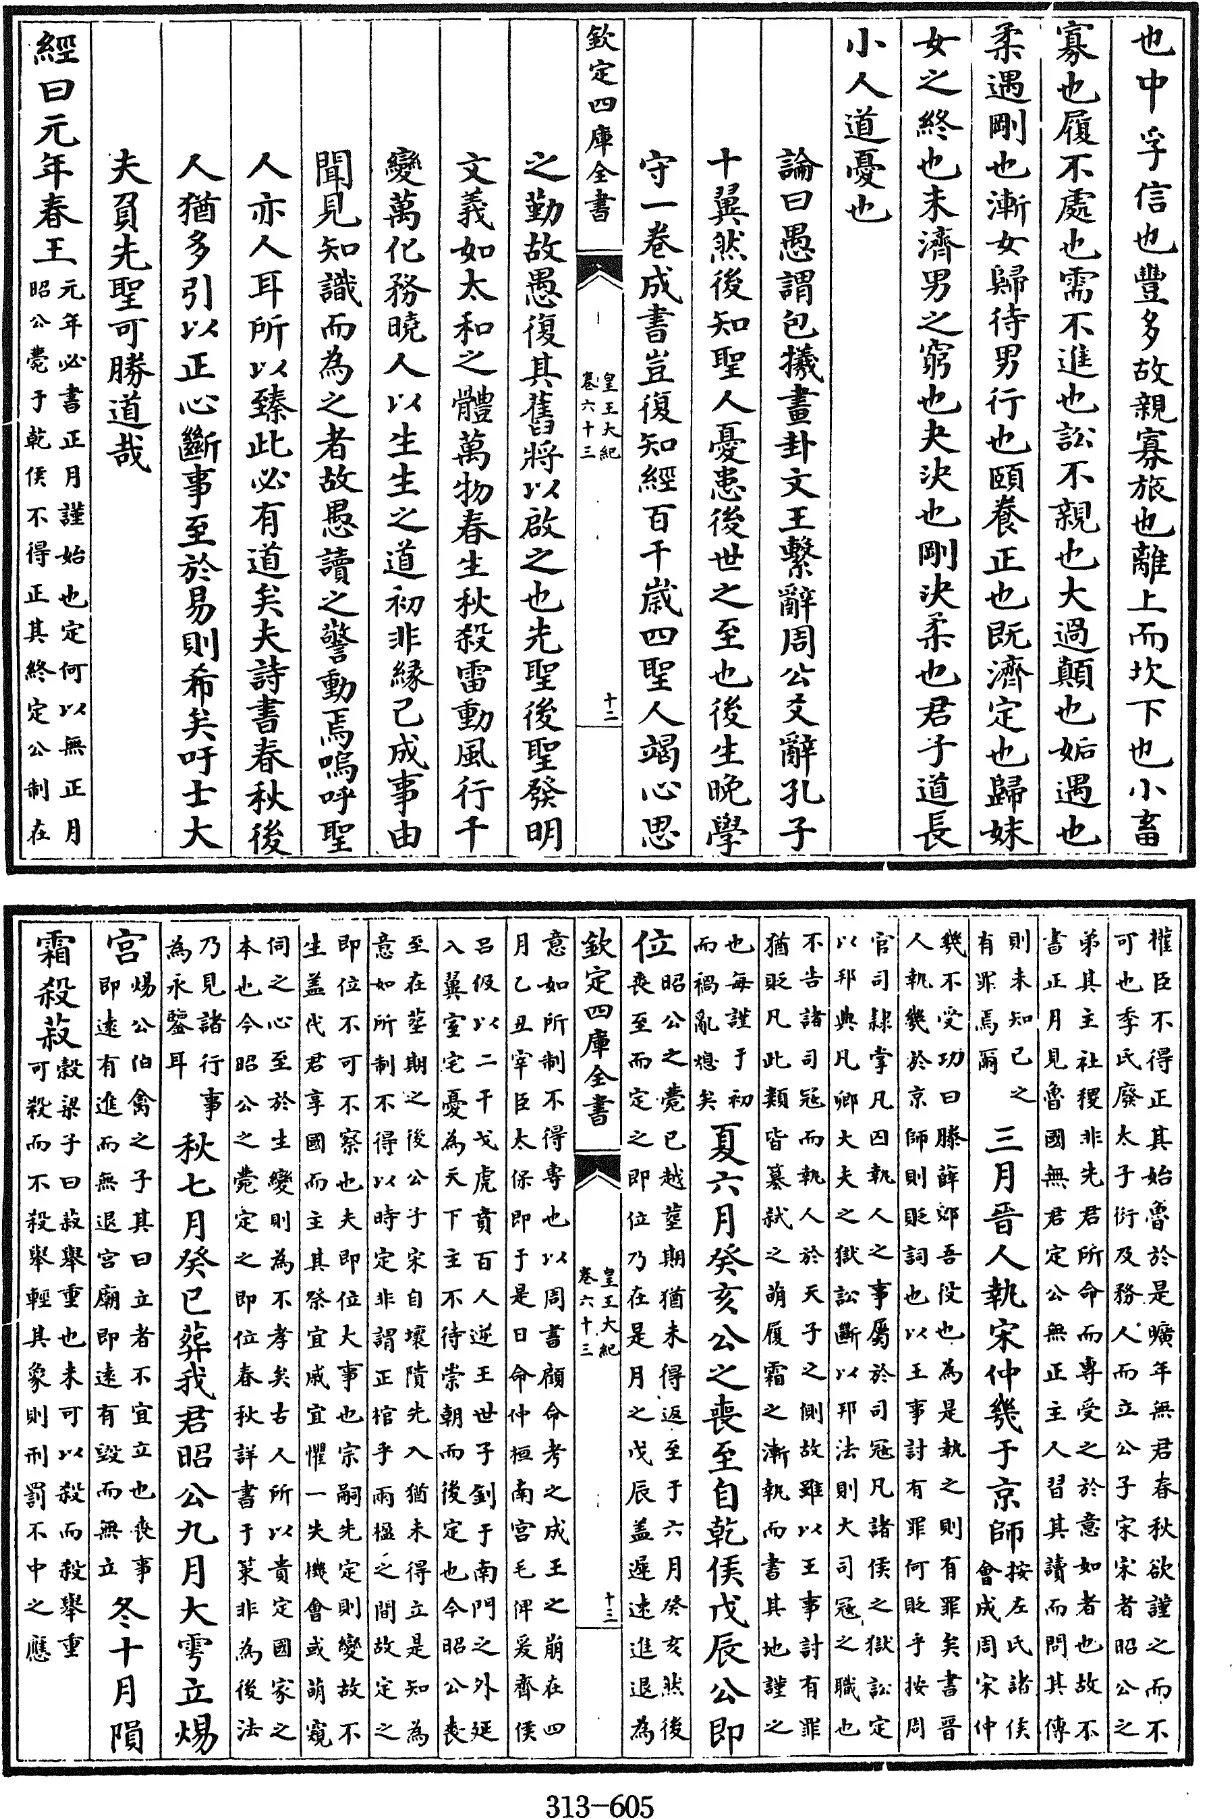 也中孚信也豐多故親寡旅也離上而坎下也小畜
寡也履不處也需不進也訟不親也大過顛也姤遇也
柔遇剛也漸女歸待男行也頤養正也既濟定也歸妹
女之終也未濟男之窮也夬決也剛決柔也君子道長
小人道憂也
論曰愚謂包犧畫卦文王繫辭周公爻辭孔子
十翼然後知聖人憂患後世之至也後生晚學
守一卷成書豈復知經百千歲四聖人竭心思
欽定四庫全書
皇王大紀
卷六十三
十二
之勤故愚復其舊將以啟之也先聖後聖發明
文義如太和之體萬物春生秋殺雷動風行千
變萬化務曉人以生生之道初非緣己成事由
聞見知識而為之者故愚讀之警動焉嗚呼聖
人亦人耳所以臻此必有道矣夫詩書春秋後
人猶多引以正心斷事至於易則希矣吁士大
夫負先聖可勝道哉
經曰元年春王
元年必書正月謹始也定何以無正月
昭公薨于乾侯不得正其終定公制在
權臣不得正其始魯於是曠年無君春秋欲謹之而不
可也季氏廢太子衍及務人而立公子宋宋者昭公之
弟其主社稷非先君所命而專受之於意如者也故不
書正月見魯國無君定公無正主人習其讀而問其傳
則未知己之
有罪焉爾
三月晉人執宋仲幾于京師
按左氏諸侯
會成周宋仲
幾不受功曰滕薛郳吾役也為是執之則有罪矣書晉
人執幾於京師則貶詞也以王事討有罪何貶乎按周
官司隸掌凡囚執人之事屬於司冦凡諸侯之獄訟定
以邦典凡卿大夫之獄訟斷以邦法則大司冦之職也
不告諸司冦而執人於天子之側故雖以王事討有罪
猶貶凡此類皆簒弑之萌履霜之漸執而書其地謹之
也每謹于初
而禍亂熄矣
夏六月癸亥公之喪至自乾侯戊辰公即
位
昭公之薨已越葬期猶未得返至于六月癸亥然後
喪至而定之即位乃在是月之戊辰盖遲速進退為
欽定四庫全書
皇王大紀
卷六十三
十三
意如所制不得專也以周書顧命考之成王之崩在四
月乙丑宰臣太保即于是日命仲桓南宮毛俾爰齊侯
吕伋以二干戈虎賁百人逆王世子釗于南門之外延
入翼室宅憂為天下主不待崇朝而後定也今昭公喪
至在葬期之後公子宋自壞隤先入猶未得立是知為
意如所制不得以時定非謂正棺乎兩楹之間故定之
即位不可不察也夫即位大事也宗嗣先定則變故不
生盖代君享國而主其祭宜戚宜懼一失機會或萌窺
伺之心至於生變則為不孝矣古人所以貴定國家之
本也今昭公之薨定之即位春秋詳書于策非為後法
乃見諸行事
為永鑒耳
秋七月癸巳葬我君昭公九月大雩立煬
宮
煬公伯禽之子其曰立者不宜立也喪事
即遠有進而無退宮廟即遠有毀而無立
冬十月隕
霜殺菽
穀梁子曰菽舉重也未可以殺而殺舉重
可殺而不殺舉輕其象則刑罰不中之應
313-605